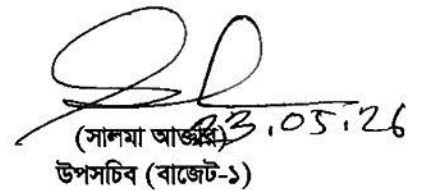 (সালমা আক্তার)
23.05.26
উপসচিব (বাজেট-১)